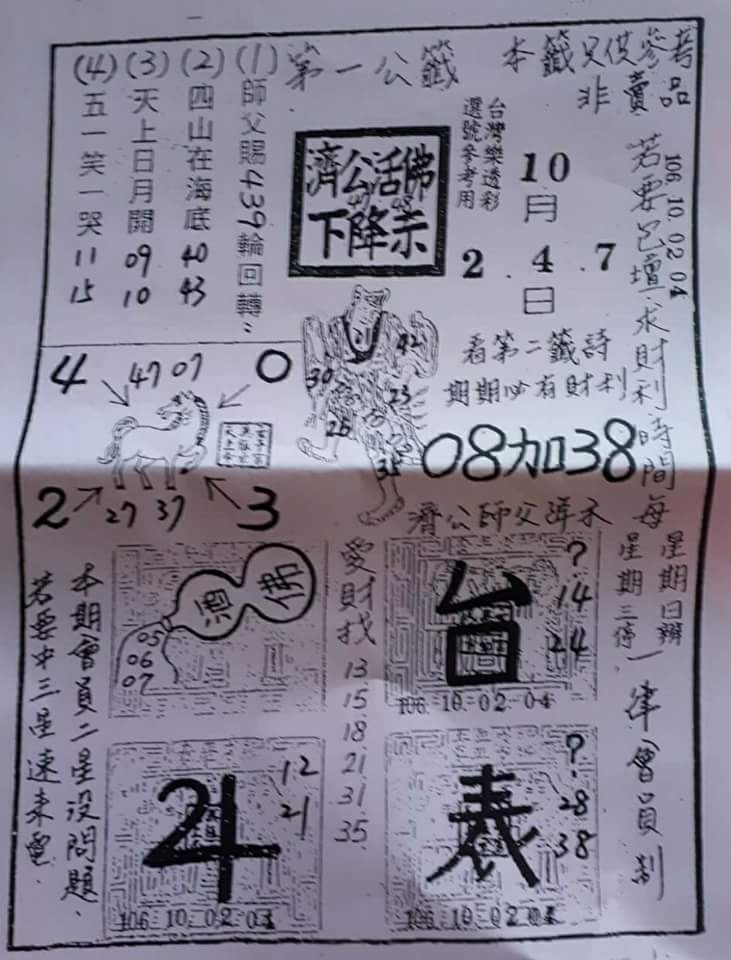 第一公籤
本籤只供參考
非賣品
106.10.02 04
若要包壇求財利時間每
星期日辦
星期三停
一律會員制
台灣樂透彩
選號參考用
10
月
2.4.7
日
濟公活佛
下降示
(1)師父賜439輪回轉
(2)四山在海底 40 43
(3)天上日月開 09 10
(4)五一笑一哭 11 15
看第二籤詩
期期必有財利
08加38
濟公師父降示
4
47 07
0
2
27 37
3
21
42
30
23
26
35
酒 佛
05
06
07
愛財找
13
15
18
21
31
35
台
?
14
24
106 10-02-04
本期會員二星没問題
若要中三星速來電
12
21
106 10 02 04
表
?
28
38
106 10 02 04